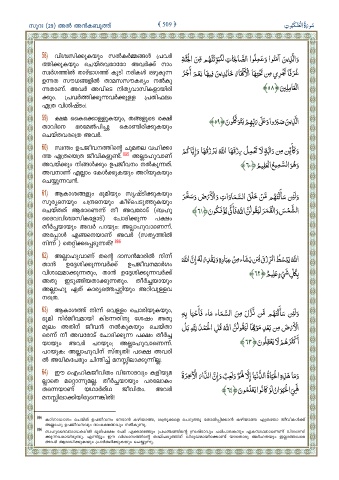 സൂറ: (29) അൽ അൻകബൂത്ത് ( 509 ) سُورَةُ الْعَنْكَبُوتِ
58) വിശ്വസിക്കുകയും സൽകർമ്മങ്ങൾ പ്രവർ
ത്തിക്കുകയും ചെയ്തവരാരോ അവർക്ക് നാം
സ്വർഗത്തിൽ താഴ്ഭാഗത്ത് കൂടി നദികൾ ഒഴുകുന്ന
ഉന്നത സൗധങ്ങളിൽ താമസസൗകര്യം നൽകു
ന്നതാണ്. അവർ അവിടെ നിത്യവാസികളായിരി
ക്കും. പ്രവർത്തിക്കുന്നവർക്കുള്ള പ്രതിഫലം
എത്ര വിശിഷ്ടം!
وَالَّذِينَ آمَنُوا وَعَمِلُوا الصَّالِحَاتِ لَنُبَوِّئَنَّهُمْ مِنَ الْجَنَّةِ
غُرَفًا تَجْرِي مِنْ تَحْتِهَا الْأَنْهَارُ خَالِدِينَ فِيهَا نِعْمَ أَجْرُ
الْعَامِلِينَ ﴿٥٨﴾
59) ക്ഷമ കൈക്കൊള്ളുകയും, തങ്ങളുടെ രക്ഷി
താവിനെ ഭരമേൽപിച്ചു കൊണ്ടിരിക്കുകയും
ചെയ്തവരത്രെ അവർ.
الَّذِينَ صَبَرُوا وَعَلَى رَبِّهِمْ يَتَوَكَّلُونَ ﴿٥٩﴾
60) സ്വന്തം ഉപജീവനത്തിന്റെ ചുമതല വഹിക്കാ
ത്ത എത്രയെത്ര ജീവികളുണ്ട്. അല്ലാഹുവാണ്
അവയ്ക്കും നിങ്ങൾക്കും ഉപജീവനം നൽകുന്നത്.
അവനാണ് എല്ലാം കേൾക്കുകയും അറിയുകയും
ചെയ്യുന്നവൻ.
وَكَأَيِّنْ مِنْ دَابَّةٍ لَا تَحْمِلُ رِزْقَهَا اللَّهُ يَرْزُقُهَا وَإِيَّاكُمْ
وَهُوَ السَّمِيعُ الْعَلِيمُ ﴿٦٠﴾
61) ആകാശങ്ങളും ഭൂമിയും സൃഷ്ടിക്കുകയും
സൂര്യനെയും ചന്ദ്രനെയും കീഴ്പെടുത്തുകയും
ചെയ്തത് ആരാണെന്ന് നീ അവരോട് (ബഹു
ദൈവവിശ്വാസികളോട്) ചോദിക്കുന്ന പക്ഷം
തീർച്ചയായും അവർ പറയും: അല്ലാഹുവാണെന്ന്.
അപ്പോൾ എങ്ങനെയാണ് അവർ (സത്യത്തിൽ
നിന്ന് ) തെറ്റിക്കപ്പെടുന്നത്?
وَلَئِنْ سَأَلْتَهُمْ مَنْ خَلَقَ السَّمَاوَاتِ وَالْأَرْضَ وَسَخَّرَ
الشَّمْسَ وَالْقَمَرَ لَيَقُولُنَّ اللَّهُ فَأَنَّى يُؤْفَكُونَ ﴿٦١﴾
62) അല്ലാഹുവാണ് തന്റെ ദാസൻമാരിൽ നിന്ന്
താൻ ഉദ്ദേശിക്കുന്നവർക്ക് ഉപജീവനമാർഗം
വിശാലമാക്കുന്നതും, താൻ ഉദ്ദേശിക്കുന്നവർക്ക്
അതു ഇടുങ്ങിയതാക്കുന്നതും. തീർച്ചയായും
അല്ലാഹു ഏത് കാര്യത്തെപ്പറ്റിയും അറിവുള്ളവ
നത്രെ.
اللَّهُ يَبْسُطُ الرِّزْقَ لِمَنْ يَشَاءُ مِنْ عِبَادِهِ وَيَقْدِرُ لَهُ إِنَّ اللَّهَ
بِكُلِّ شَيْءٍ عَلِيمٌ ﴿٦٢﴾
63) ആകാശത്ത് നിന്ന് വെള്ളം ചൊരിയുകയും,
ഭൂമി നിർജീവമായി കിടന്നതിനു ശേഷം അതു
മൂലം അതിന് ജീവൻ നൽകുകയും ചെയ്താ
രെന്ന് നീ അവരോട് ചോദിക്കുന്ന പക്ഷം തീർച്ച
യായും അവർ പറയും; അല്ലാഹുവാണെന്ന്.
പറയുക: അല്ലാഹുവിന് സ്തുതി! പക്ഷെ അവരി
ൽ അധികപേരും ചിന്തിച്ച് മനസ്സിലാക്കുന്നില്ല.
وَلَئِنْ سَأَلْتَهُمْ مَنْ نَزَّلَ مِنَ السَّمَاءِ مَاءً فَأَحْيَا بِهِ
الْأَرْضَ مِنْ بَعْدِ مَوْتِهَا لَيَقُولُنَّ اللَّهُ قُلِ الْحَمْدُ لِلَّهِ بَلْ
أَكْثَرُهُمْ لَا يَعْقِلُونَ ﴿٦٣﴾
64) ഈ ഐഹികജീവിതം വിനോദവും കളിയുമ
ല്ലാതെ മറ്റൊന്നുമല്ല. തീർച്ചയായും പരലോകം
തന്നെയാണ് യഥാർത്ഥ ജീവിതം. അവർ
മനസ്സിലാക്കിയിരുന്നെങ്കിൽ!
وَمَا هَذِهِ الْحَيَاةُ الدُّنْيَا إِلَّا لَهْوٌ وَلَعِبٌ وَإِنَّ الدَّارَ الْآخِرَةَ
لَهِيَ الْحَيَوَانُ لَوْ كَانُوا يَعْلَمُونَ ﴿٦٤﴾